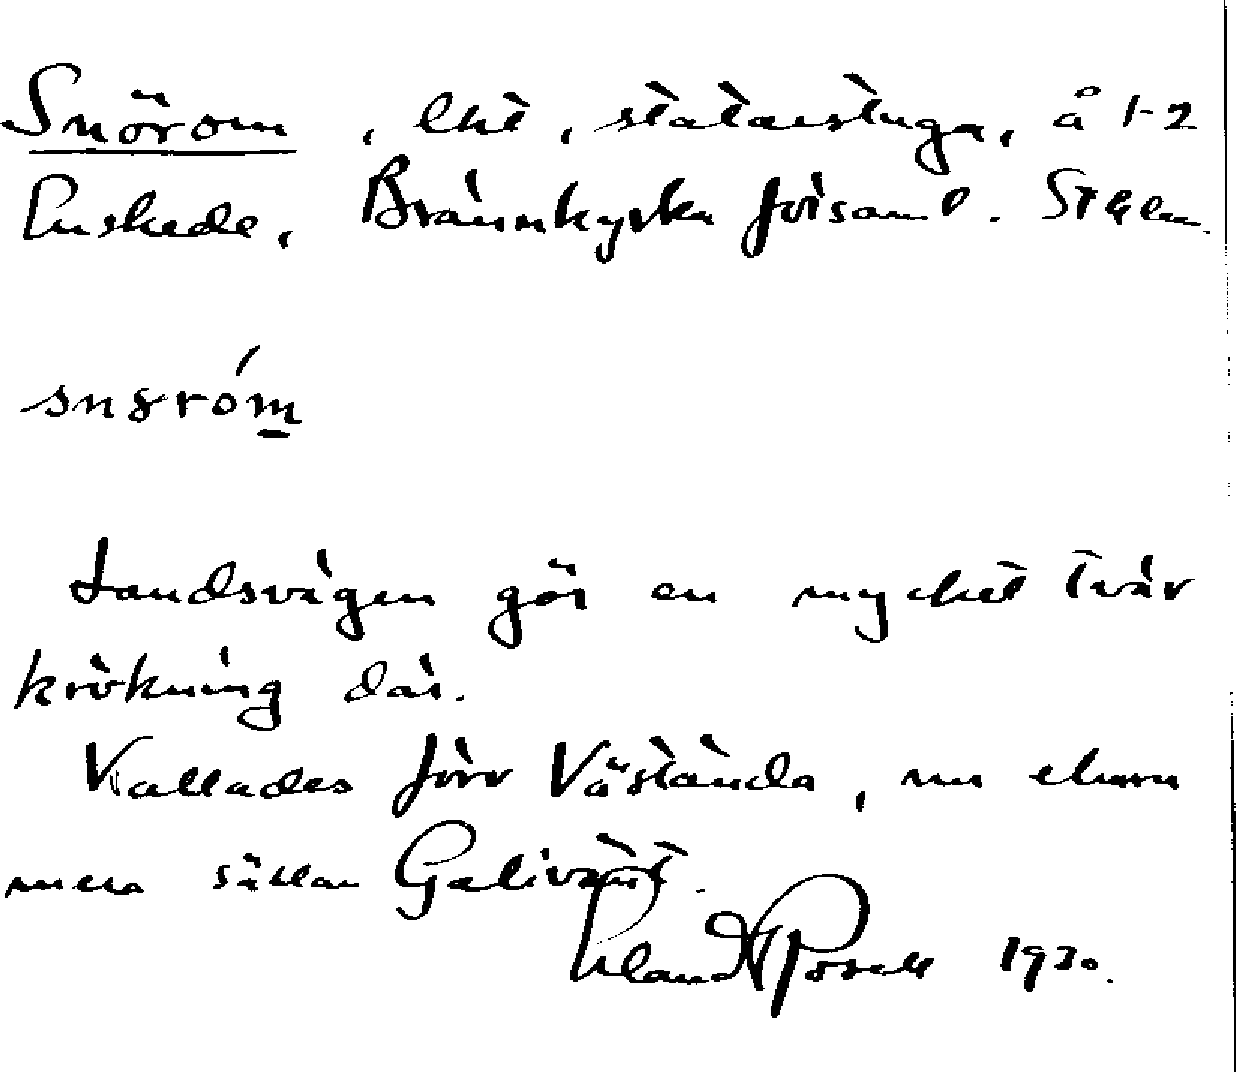 Snörom, lht, statarstuga, å 1-2
Enskede, Brännkyrka förs. Sthlm
snɤróm
Landsvägen gör en mycket tvär
krökning där.
Kallades förr Västända, nu ehuru
mera sällan Galivänt.
Erland Rosell 1930.